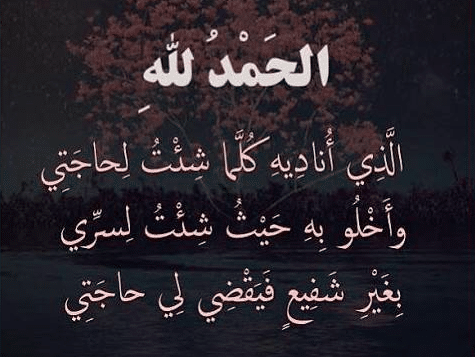 الحَمْدُ للهِ
الَّذِي أُنادِيهِ كُلَّما شِئْتُ لِحاجَتِي
وأَخْلُو بِهِ حَيْثُ شِئْتُ لِسرِّي
بِغَيْرِ شَفِيعٍ فَيَقْضِي لِي حاجَتِي